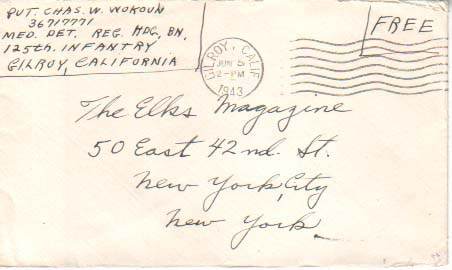 PVT. CHAS. W. WOKOUN
36717771
MED. DET. REG. HDQ. BN.
125th. INFANTRY
GILROY, CALIFORNIA
FREE
GILROY, CALIF.
JUN 5
2-PM
1943
The Elks Magazine
50 East 42nd. St.
New York, City
New York.